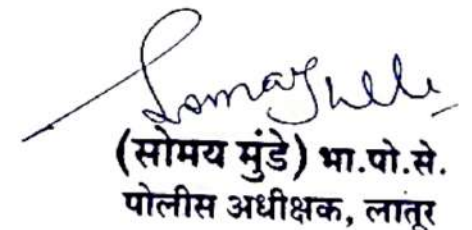 (सोमय मुंडे) भा.पो.से.
पोलीस अधीक्षक, लातूर